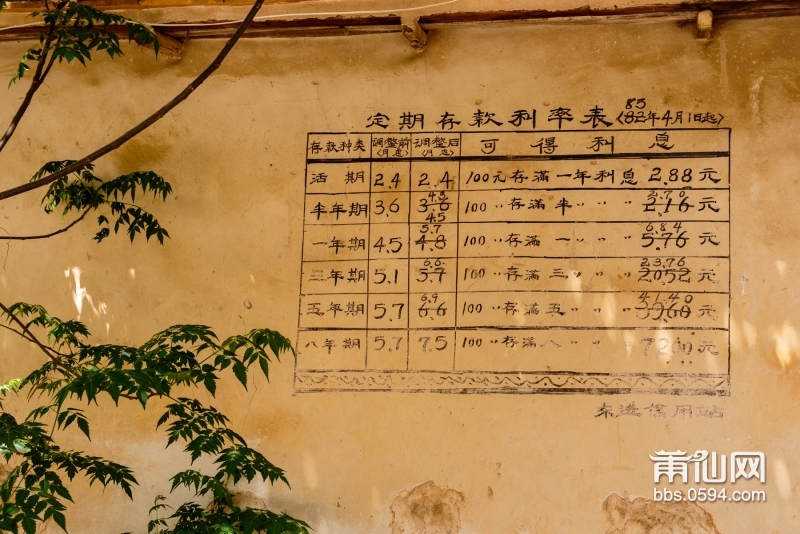 定期存款利率表 85 (83年4月1日起)
存款种类 调整前(月息) 调整后(月息) 可得利息
活期 2.4 2.4 100元存满一年利息 2.88元
半年期 3.6 4.5 3.6 100〃存满半〃〃〃 2.70 2.16元
一年期 4.5 5.7 4.8 100〃存满一〃〃〃 6.84 5.76元
三年期 5.1 6.6 5.7 100〃存满三〃〃〃 23.76 2052元
五年期 5.7 6.9 6.6 100〃存满五〃〃〃 41.40 3960元
八年期 5.7 7.5 100〃存满八〃〃〃 7200元
东进信用站
莆仙网
bbs.0594.com